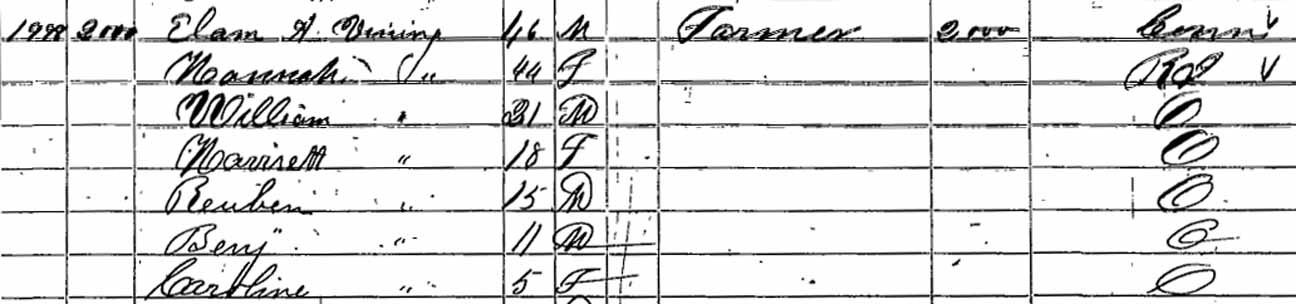 2000 Elam A. Vining 46 M Farmer 2,000 Conn
Hannah " 44 F
William " 21 M O
Harriett " 18 F O
Reuben " 15 M O
Benj " 11 M O
Caroline " 5 F O